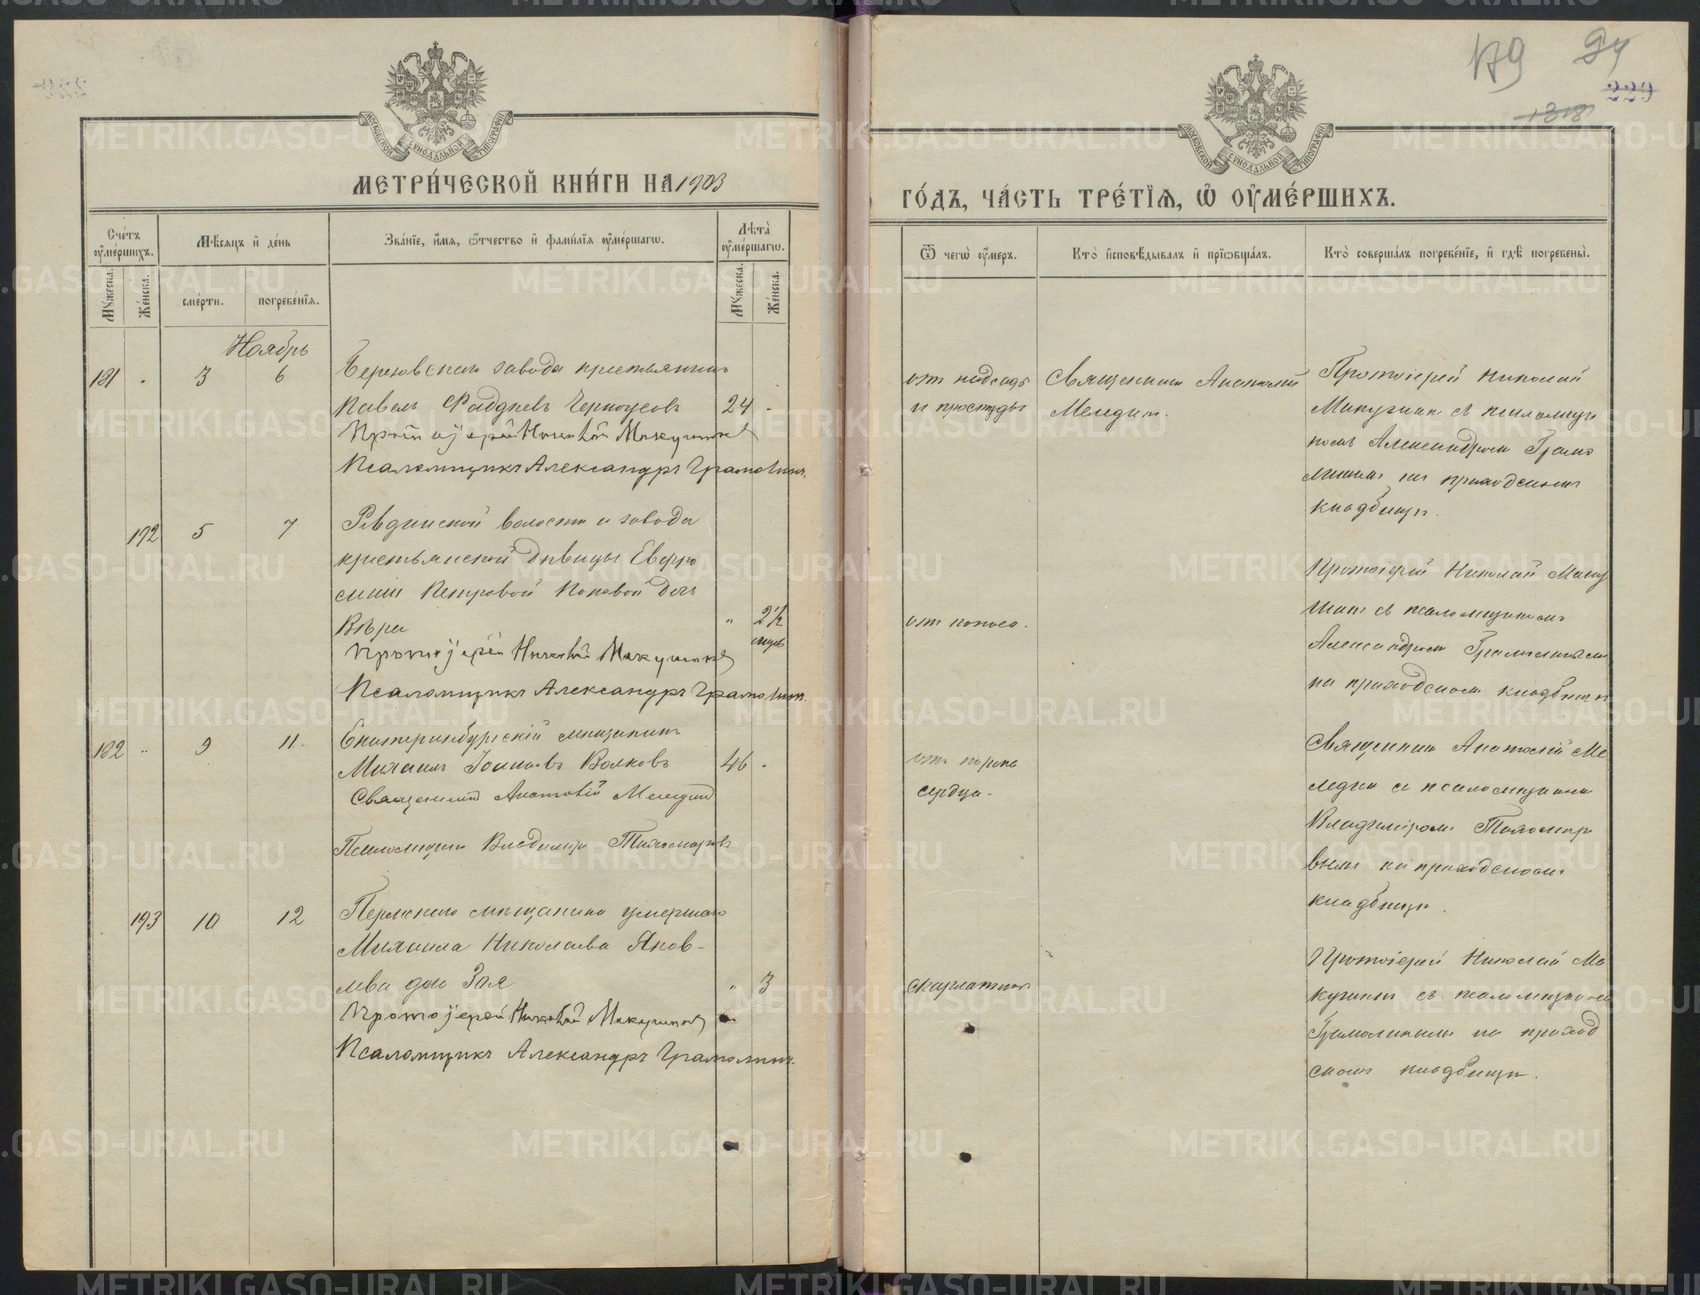 179 94
МЕТРИ́ЧЕСКОЙ КНИ́ГИ НА 1903
ГО́ДЪ, ЧА́СТЬ ТРЕ́ТІѦ, Ѡ҆ ОУ҆МЕ́РШИХЪ.
Сче́тъ оу҆ме́ршихъ.
Мꙋ́жеска.
Же́нска.
Мѣсѧцъ и҆ де́нь
сме́рти.
погребе́нїѧ.
Зва́нїе, и҆́мѧ, ѻ҆́тчество и҆ фамн́лїѧ оу҆ме́ршагѡ.
Лѣ́та оу҆ме́ршагѡ.
Мꙋ́жеска.
Же́нска.
Ѿ чегѡ̀ оу҆́меръ.
Кто̀ и҆сповѣ́дывалъ и҆ прїѡбща́лъ.
Кто̀ соверша́лъ погребе́нїе, и҆ гдѣ̀ погребены̀.
Ноябрь
181 3 6 Березовскаго завода крестьянинъ
Павелъ Фаддѣевъ Черноусовъ 24
Протоіерей Николай Макушинъ
Псаломщикъ Александръ Грамолинъ.
Священникъ Анатолій
и простуды
Протоіерей Николай
Макушинъ съ псаломщи
комъ Александромъ Грамо
линымъ на приходскомъ
кладбищѣ.
192 5 7 Ревдинской волости и завода
крестьянской дѣвицы Евфро
синіи Петровой Поповой дочь
Вѣра 2½
Протоіерей Николай Макушинъ
Псаломщикъ Александръ Грамолинъ.
отъ поноса.
Протоіерей Николай Маку
шинъ съ псаломщикомъ
Александромъ Грамолинымъ
на приходскомъ кладбищѣ
182 9 11. Екатеринбургскій мѣщанинъ
Михаилъ Іоанновъ Волковъ 46
Священникъ Анатолій
Псаломщикъ Владиміръ Тихомировъ
отъ порока
сердца.
Священникъ Анатолій
съ псаломщикомъ
Владиміромъ Тихомиро
вымъ на приходскомъ
кладбищѣ.
193 10 12 Пермскаго мѣщанина умершаго
Михаила Николаева Яков-
лева дочь Зоя 3
Протоіерей Николай Макушинъ
Псаломщикъ Александръ Грамолинъ.
скарлатины
Протоіерей Николай Ма
кушинъ съ псаломщикомъ
Грамолинымъ на приход
скомъ кладбищѣ.
METRIKI.GASO-URAL.RU